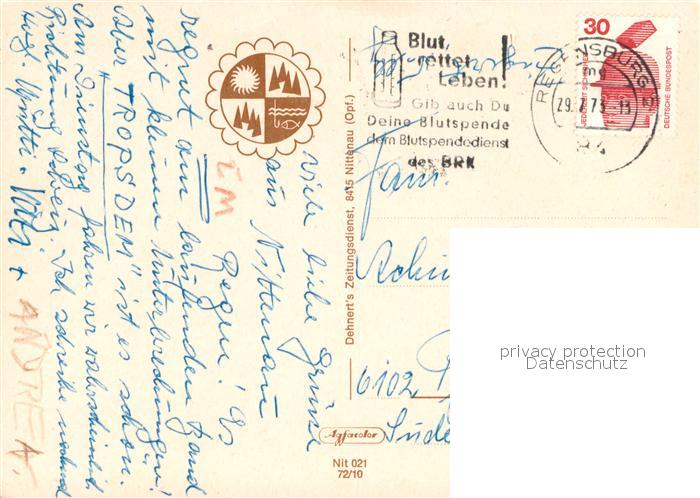 Viele liebe Grüße
aus Nittenau
im Regen! Es
regnet am laufenden Band
mit kleinen Unterbrechungen!
Aber "TROPSDEM" ist es schön.
Am Dienstag fahren wir wahrscheinlich
Richtung Ich schreibe nochmal
+
ANDREA.
Dehnert's Zeitungsdienst, 8415 Nittenau (Opf.)
Agfacolor
Nit 021
72/10
Blut
rettet
Leben!
Gib auch Du
Deine Blutspende
dem Blutspendedienst
des BRK
REGENSBURG 2
mg
29.7.73-13
R4
30
JEDERZEIT SICHERHEIT
DEUTSCHE BUNDESPOST
Fam.
6102
privacy protection
Datenschutz